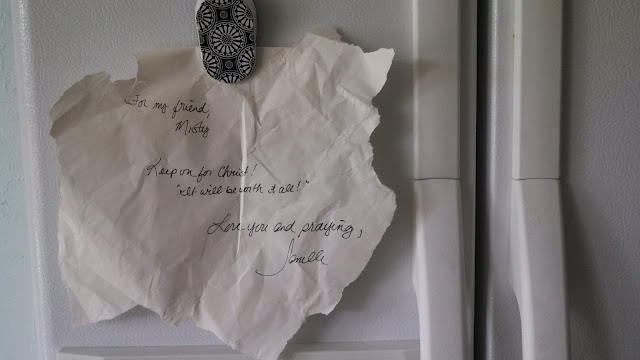 For my friend,
Misty
Keep on for Christ!
"It will be worth it all!"
Love you and praying,
Janelle